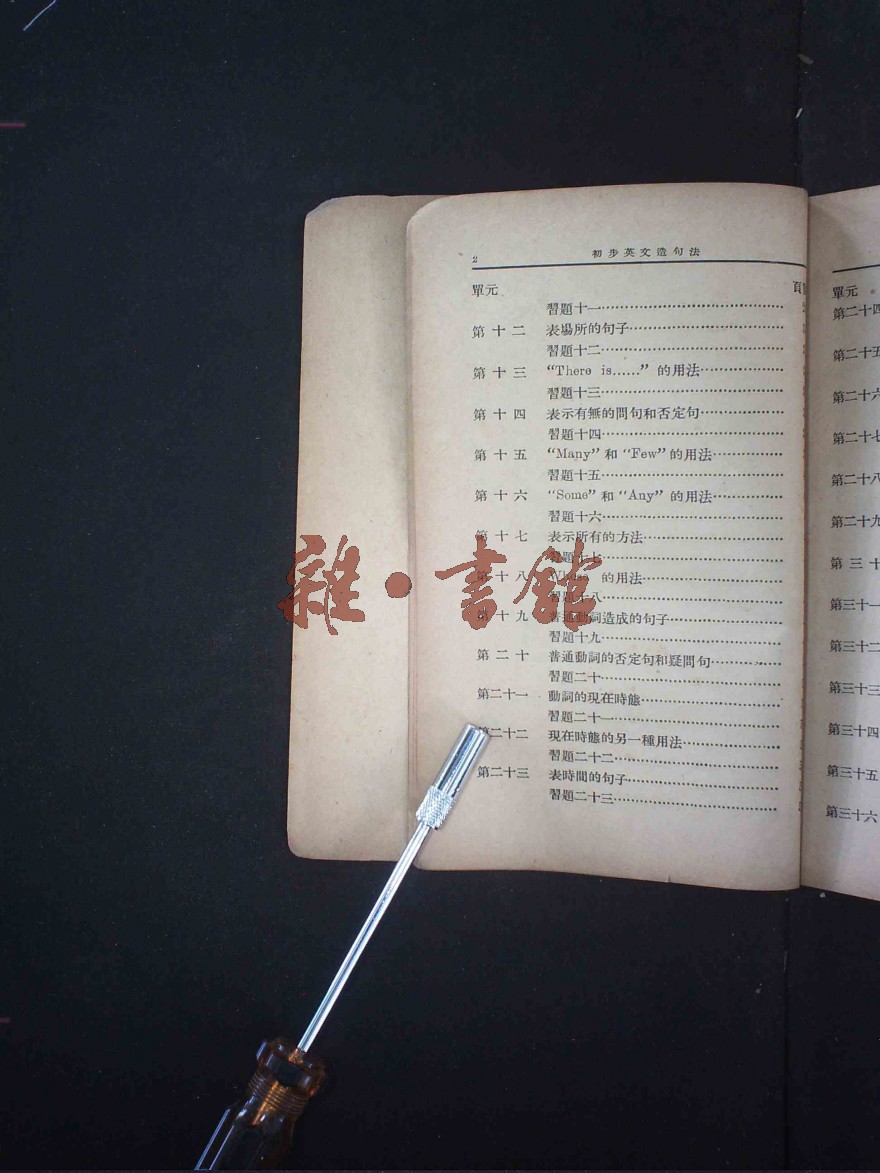 2 初步英文造句法
單元 頁
習題十一
第十二 表場所的句子
習題十二
第十三 “There is......” 的用法
習題十三
第十四 表示有無的問句和否定句
習題十四
第十五 “Many” 和 “Few” 的用法
習題十五
第十六 “Some” 和 “Any” 的用法
習題十六
第十七 表示所有的方法
習題十七
第十八 的用法
習題十八
第十九 普通動詞造成的句子
習題十九
第二十 普通動詞的否定句和疑問句
習題二十
第二十一 動詞的現在時態
習題二十一
第二十二 現在時態的另一種用法
習題二十二
第二十三 表時間的句子
習題二十三
單元
第二十四
第二十五
第二十六
第二十七
第二十八
第二十九
第三十
第三十一
第三十二
第三十三
第三十四
第三十五
第三十六
雜·書館